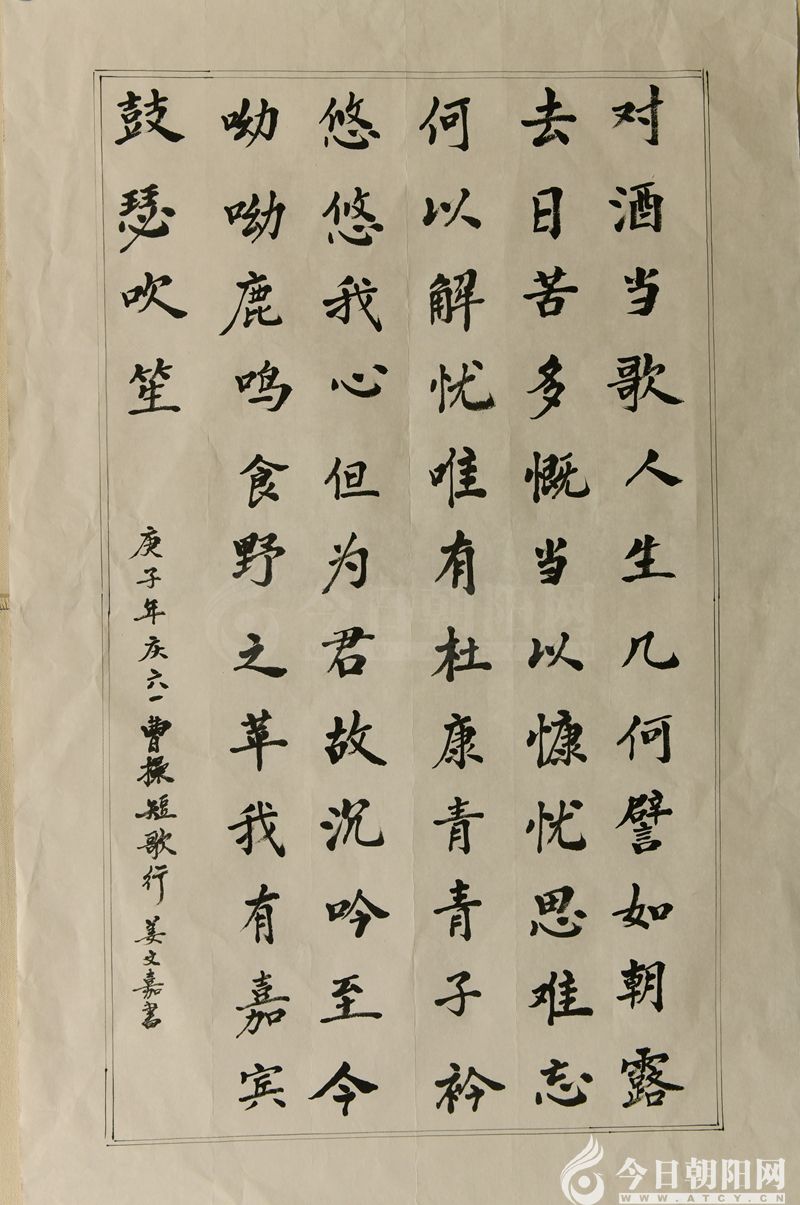 对酒当歌人生几何譬如朝露
去日苦多慨当以慷忧思难忘
何以解忧唯有杜康青青子衿
悠悠我心但为君故沉吟至今
呦呦鹿鸣食野之苹我有嘉宾
鼓瑟吹笙
庚子年庆六一曹操短歌行 姜文嘉书
今日朝阳网
WWW.ATCY.CN